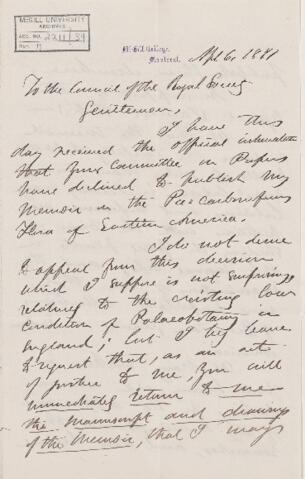 McGILL UNIVERSITY
ARCHIVES
ACC. NO. 2211/39
REF. 
McGill College,
Montreal.
Apl 6, 1881
To the Council of the Royal Society
Gentlemen,
I have this
day received the official intimation
that your Committee on Papers
have declined to publish my
Memoir on the Pre-carboniferous
Flora of Eastern America.
I do not desire
to appeal from this decision
which I suppose is not surprising
relatively to the existing low
condition of Palaeobotany in
England; but I beg leave
to request that, as an act
of justice to me, you will
immediately return to me
the manuscript and drawings
of the Memoir, that I may